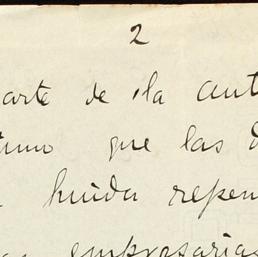 2
arte de la aut
que las
huida repen
empresarias